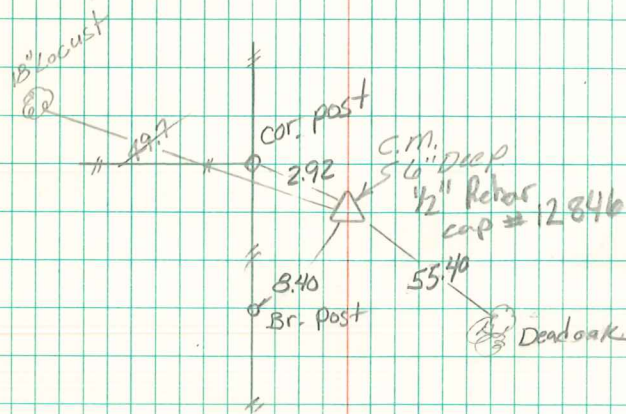 18" Locust
49.7
Cor. post
2.92
C.M.
6" Deep
1/2" Rebar
cap # 12846
8.40
Br. post
55.40
Dead oak